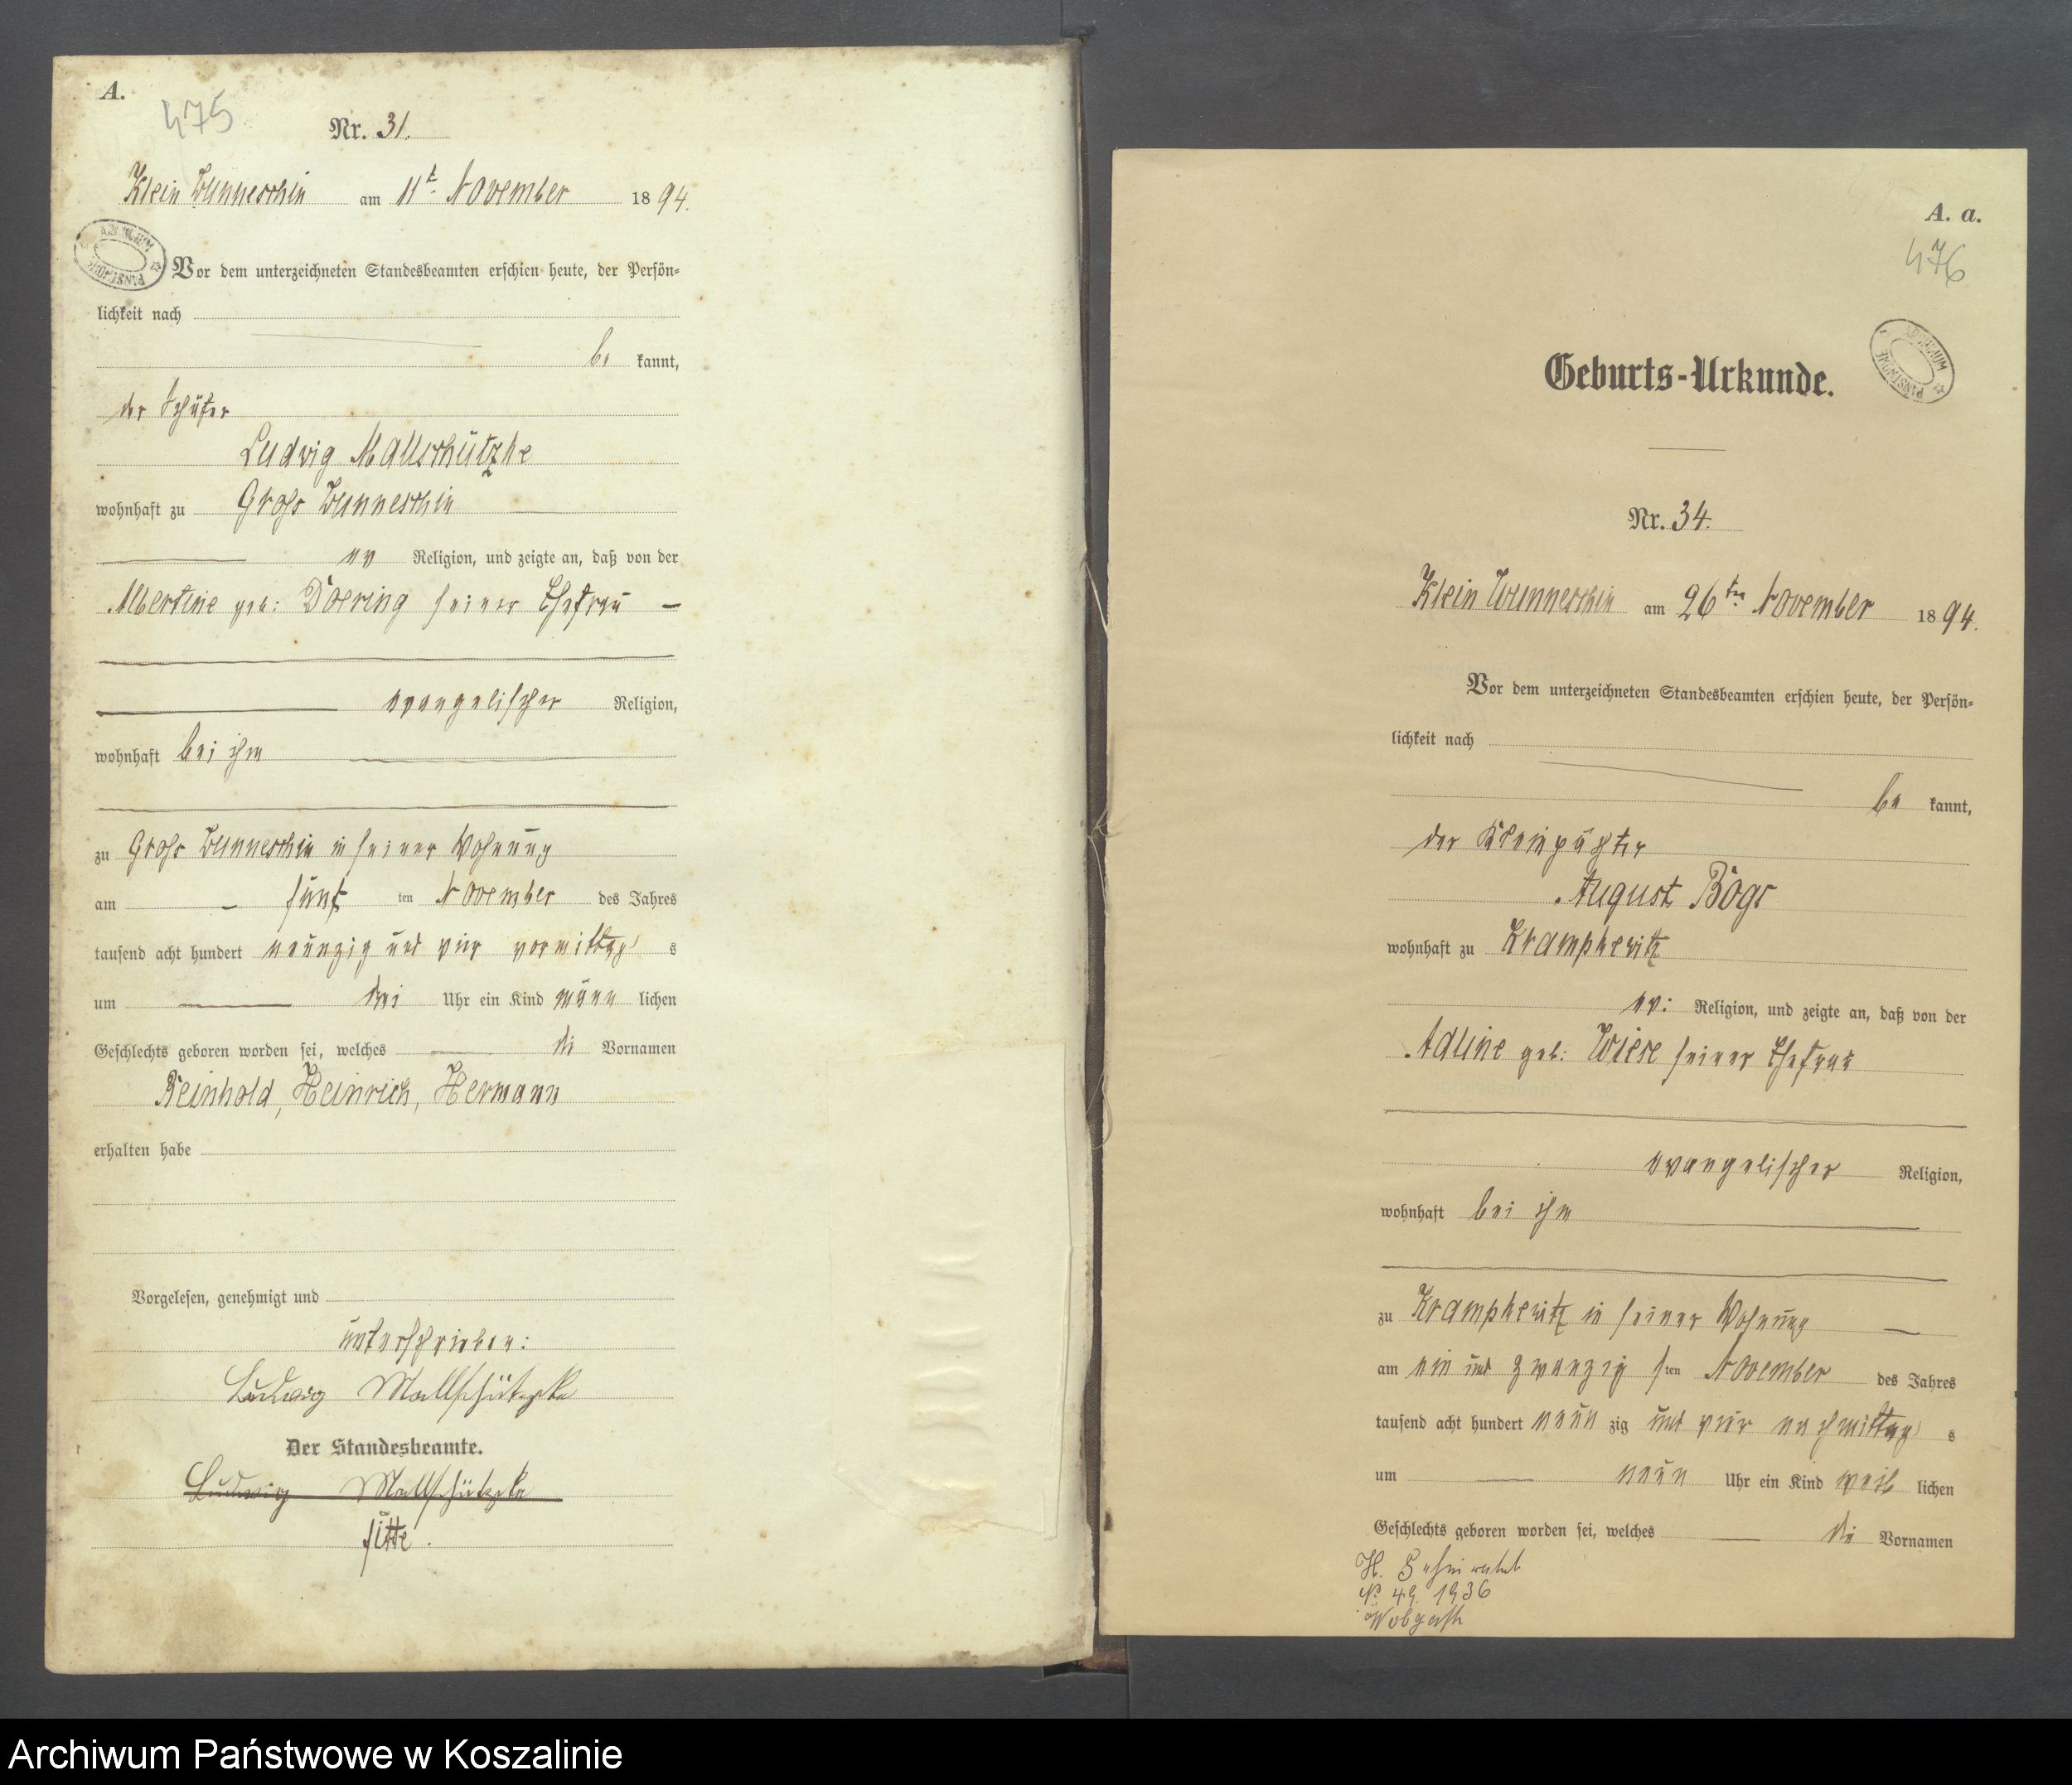 A.
475
Nr. 31.
Klein Wunneschin am 11t November 1894.
ARCHIWUM PAŃSTWOWE
Vor dem unterzeichneten Standesbeamten erschien heute, der Persön=
lichkeit nach
be kannt,
der Schäfer
Ludwig Mallschützke
wohnhaft zu Gross Wunneschin
ev Religion, und zeigte an, daß von der
Albertine geb: Doering seiner Ehefrau
evangelischer Religion,
wohnhaft bei ihm
zu Gross Wunneschin in seiner Wohnung
am fünf ten November des Jahres
tausend acht hundert neunzig und vier vormittag s
um drei Uhr ein Kind männ lichen
Geschlechts geboren worden sei, welches die Vornamen
Reinhold, Heinrich, Hermann
erhalten habe
Vorgelesen, genehmigt und
unterschrieben:
Ludwig Mallschützke
Der Standesbeamte.
Ludwig Mallschützke
A. a.
476
ARCHIWUM PAŃSTWOWE
Geburts-Urkunde.
Nr. 34.
Klein Wunneschin am 26ten November 1894.
Vor dem unterzeichneten Standesbeamten erschien heute, der Persön=
lichkeit nach
be kannt,
der Kleinpächter
August Bógs
wohnhaft zu Krampkewitz
ev: Religion, und zeigte an, daß von der
Adline geb: Wiese seiner Ehefrau
evangelischer Religion,
wohnhaft bei ihm
zu Krampkewitz in seiner Wohnung
am ein und zwanzig sten November des Jahres
tausend acht hundert neun zig und vier nachmittag s
um neun Uhr ein Kind weib lichen
Geschlechts geboren worden sei, welches die Vornamen
H. Geheiratet
No 49. 1936
Wolgast
Archiwum Państwowe w Koszalinie